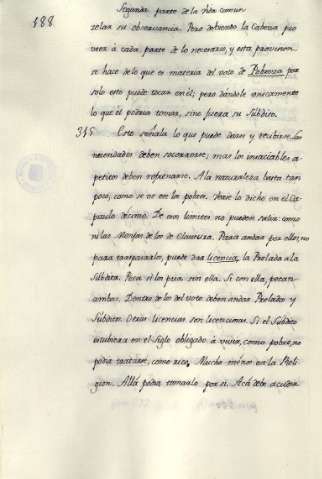 188
Segunda parte de la Vida comun
zelar su observancia. Pero debiendo la Cabeza pro
veer à cada parte de lo necesario, y esta provision
se hace de lo que es materia del voto de Pobreza por
solo esto puede tocar en él; pero dándole unicamente
lo que él podria tomar, sino fuera su Súbdito.
315 Esto señala lo que puede darse y recibirse. Las
necesidades deben socorrerse; mas los insaciables a
petitos deben refrenarse. A la naturaleza basta tam
poco, como se ve en los pobres.
pitulo decimo. De sus limites no pueden salir como
ni las Monjas de los de Clausura. Pecan ambas por ellos, no
para traspasarlos, puede dar licencia, la Prelada à la
Súbdita. Peca si los pasa sin ella. Si con ella, pecan
ambas. Dentro de los del voto deben andar Prelados y
Súbditos. Otras licencias son licenciosas. Si el Súbdito
estubiera en el Siglo obligado à vivir, como pobre, no
podria tratarse, como rico, Mucho ménos en la Reli
gion. Allá podria tomarlo por sí. Acá debe acudir